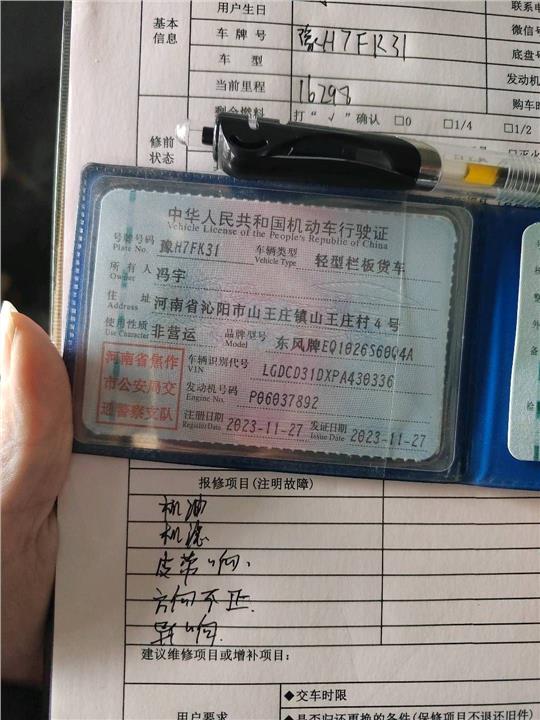 用户生日
联系电
基本
信息
车 牌 号
豫H7FK31
微信号
车 型
底盘号
当前里程
16298
发动机
购车时
修前
状态
剩余燃料
打“√”确认
□0
□1/4
□1/2
中华人民共和国机动车行驶证
Vehicle License of the People's Republic of China
号牌号码
Plate No.
豫H7FK31
车辆类型
Vehicle Type
轻型栏板货车
所有人
Owner
冯宇
住址
Address
河南省沁阳市山王庄镇山王庄村4号
使用性质
Use Character
非营运
品牌型号
Model
东风牌EQ1026S60Q4A
河南省焦作
市公安局交
通警察支队
车辆识别代号
VIN
LGDCD31DXPA430336
发动机号码
Engine No.
P06037892
注册日期
Register Date
2023-11-27
发证日期
Issue Date
2023-11-27
报修项目(注明故障)
机油
机滤
皮带响.
方向不正.
异响.
建议维修项目或增补项目：
用户要求
◆交车时限
◆是否归还更换的条件(保修项目不退还旧件)